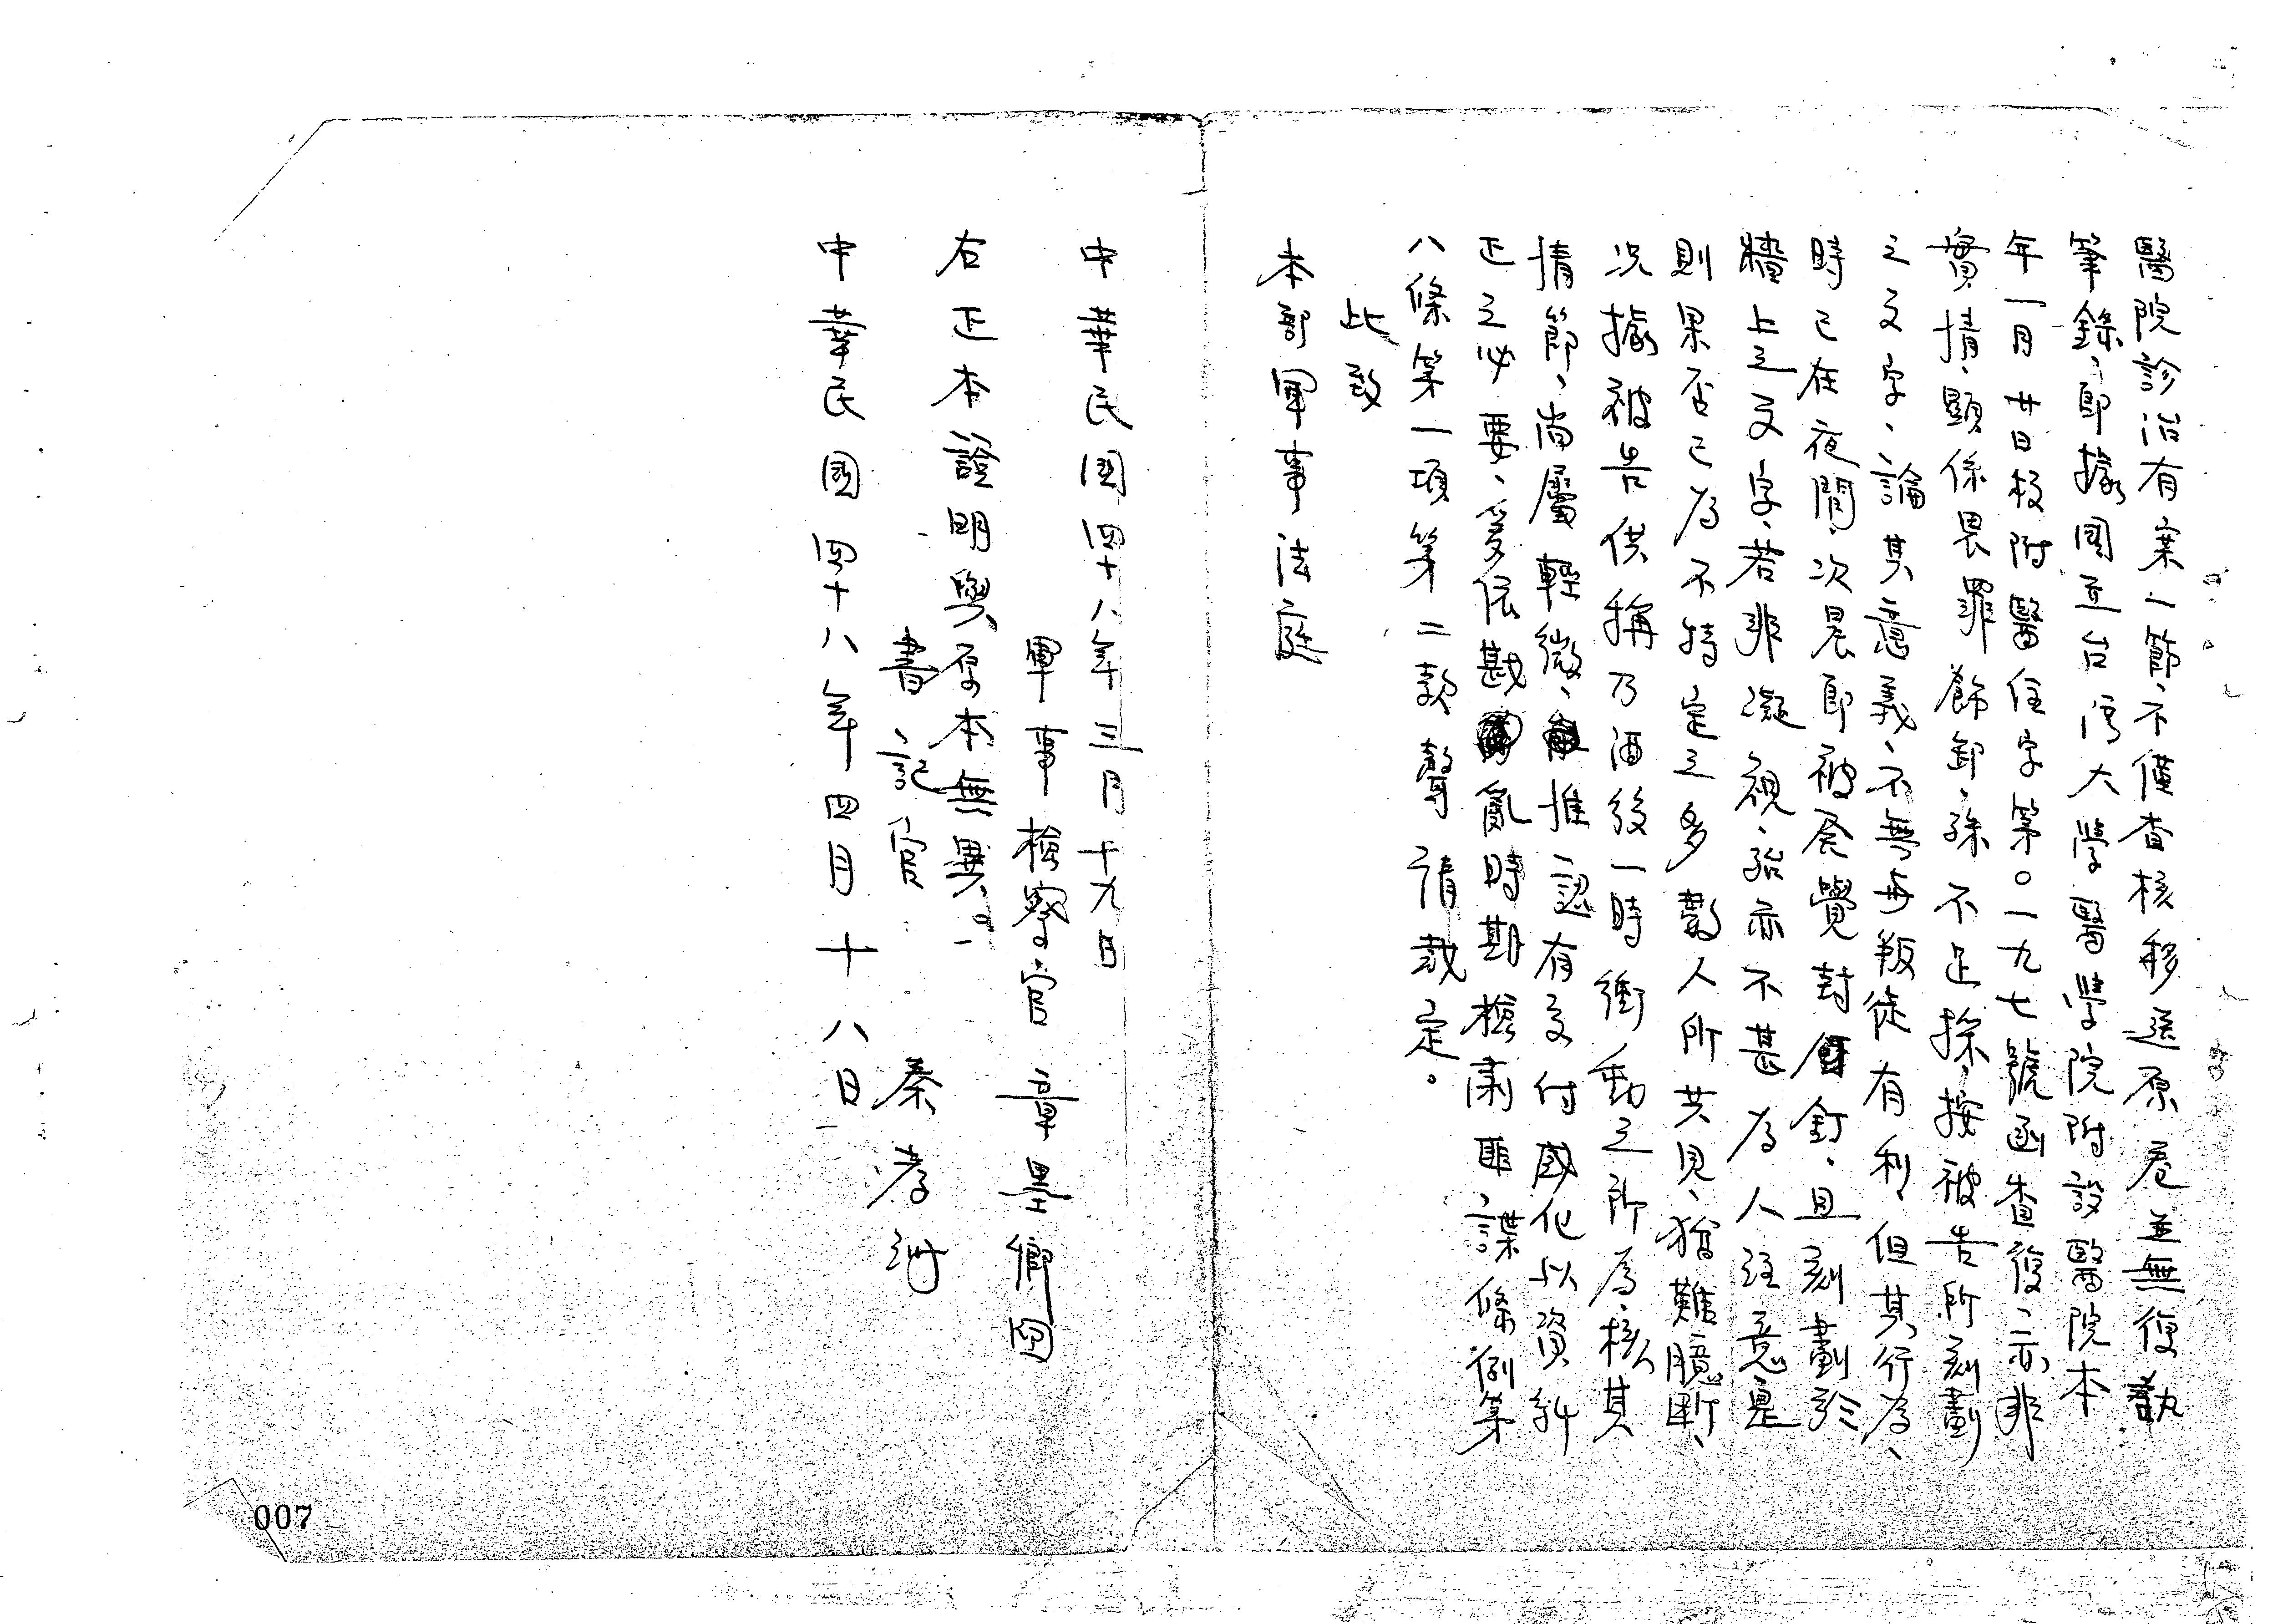 醫院診治有案一節、不僅查核移送原卷並無復執
筆錄、即據國立台灣大學醫學院附設醫院本
年一月廿日校附醫住字第〇一九七號函查復、亦非
實情、顯係畏罪飾卸、殊不足採、按被告所刻劃
之文字、論其意義、不無與叛徒有利、但其行為、
時已在夜間、次晨即被發覺封釘、且刻劃於
牆上之文字、若非凝視、殆亦不甚為人注意、是
則果否已為不特定之多數人所共見、猶難臆斷、
況據被告供稱乃酒後一時衝動之所為、核其
情節、尚屬輕微、推認有交付感化以資糾
正之必要、爰依戡亂時期檢肅匪諜條例第
八條第一項第二款聲請裁定。
此致
本部軍事法庭
中華民國四十八年三月十九日
軍事檢察官 章墨卿
右正本證明與原本無異。
書記官 秦孝
中華民國四十八年四月十八日
007